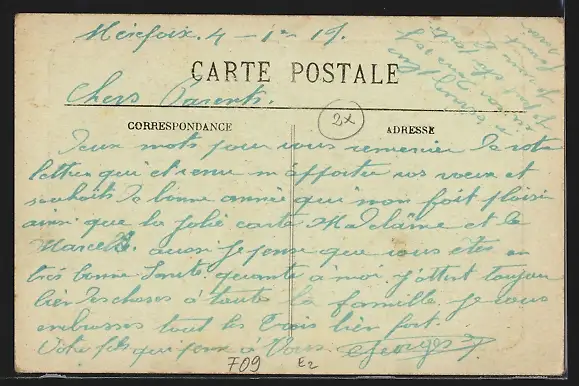 4 - 1er 19.
CARTE POSTALE
Chers Parents.
CORRESPONDANCE
ADRESSE
2x
Deux mots pour vous remercier de votre
lettre qui et venu m'apporter vos voeux et
souhaits de bonne année qui mon fait plaisir
ainsi que la jolie carte Madelaine et de
Marcelle. aussi je pense que vous êtes en
très bonne Santé quante a moi. j'attent toujour
bien des choses a toute la famille. je vous
embrasses tout les trois bien fort.
Votre fils qui pense a Vous. Georges
709 E2